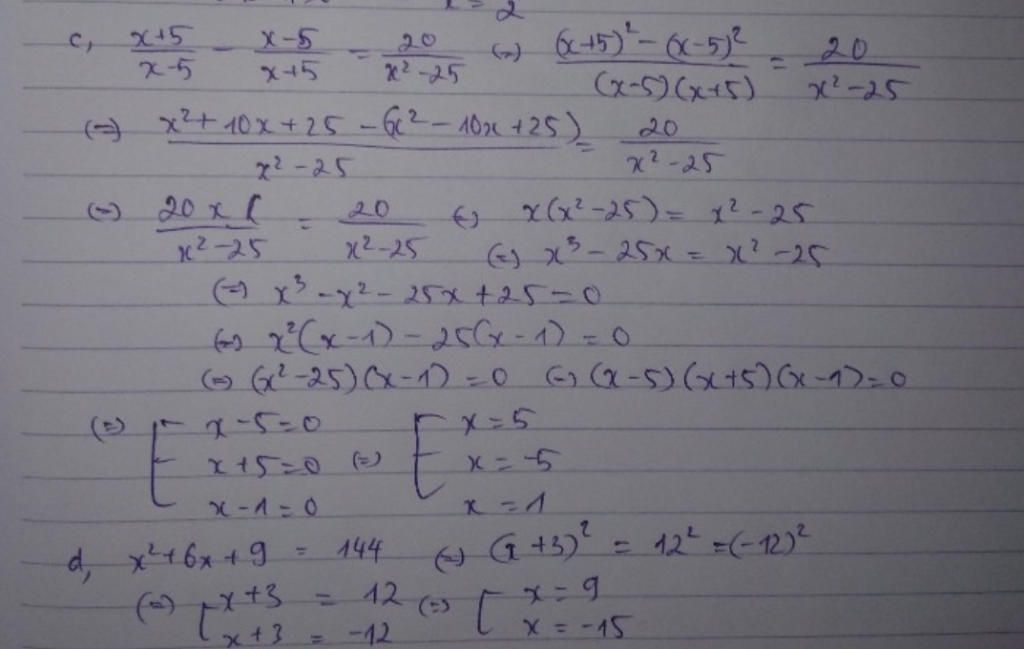 x = 2
c, x+5/x-5 - x-5/x+5 = 20/x²-25 (=) (x+5)²-(x-5)²/(x-5)(x+5) = 20/x²-25
(=) x²+10x+25-(x²-10x+25)/x²-25 = 20/x²-25
(=) 20x/x²-25 = 20/x²-25 (=) x(x²-25) = x²-25
(=) x³-25x = x²-25
(=) x³-x²-25x+25=0
(=) x²(x-1)-25(x-1)=0
(=) (x²-25)(x-1)=0 (=) (x-5)(x+5)(x-1)=0
(=) [ x-5=0 [ x=5
x+5=0 (=) x=-5
x-1=0 x=1
d, x²+6x+9 = 144 (=) (x+3)² = 12² =(-12)²
(=) [ x+3 = 12 (=) [ x=9
x+3 = -12 x=-15